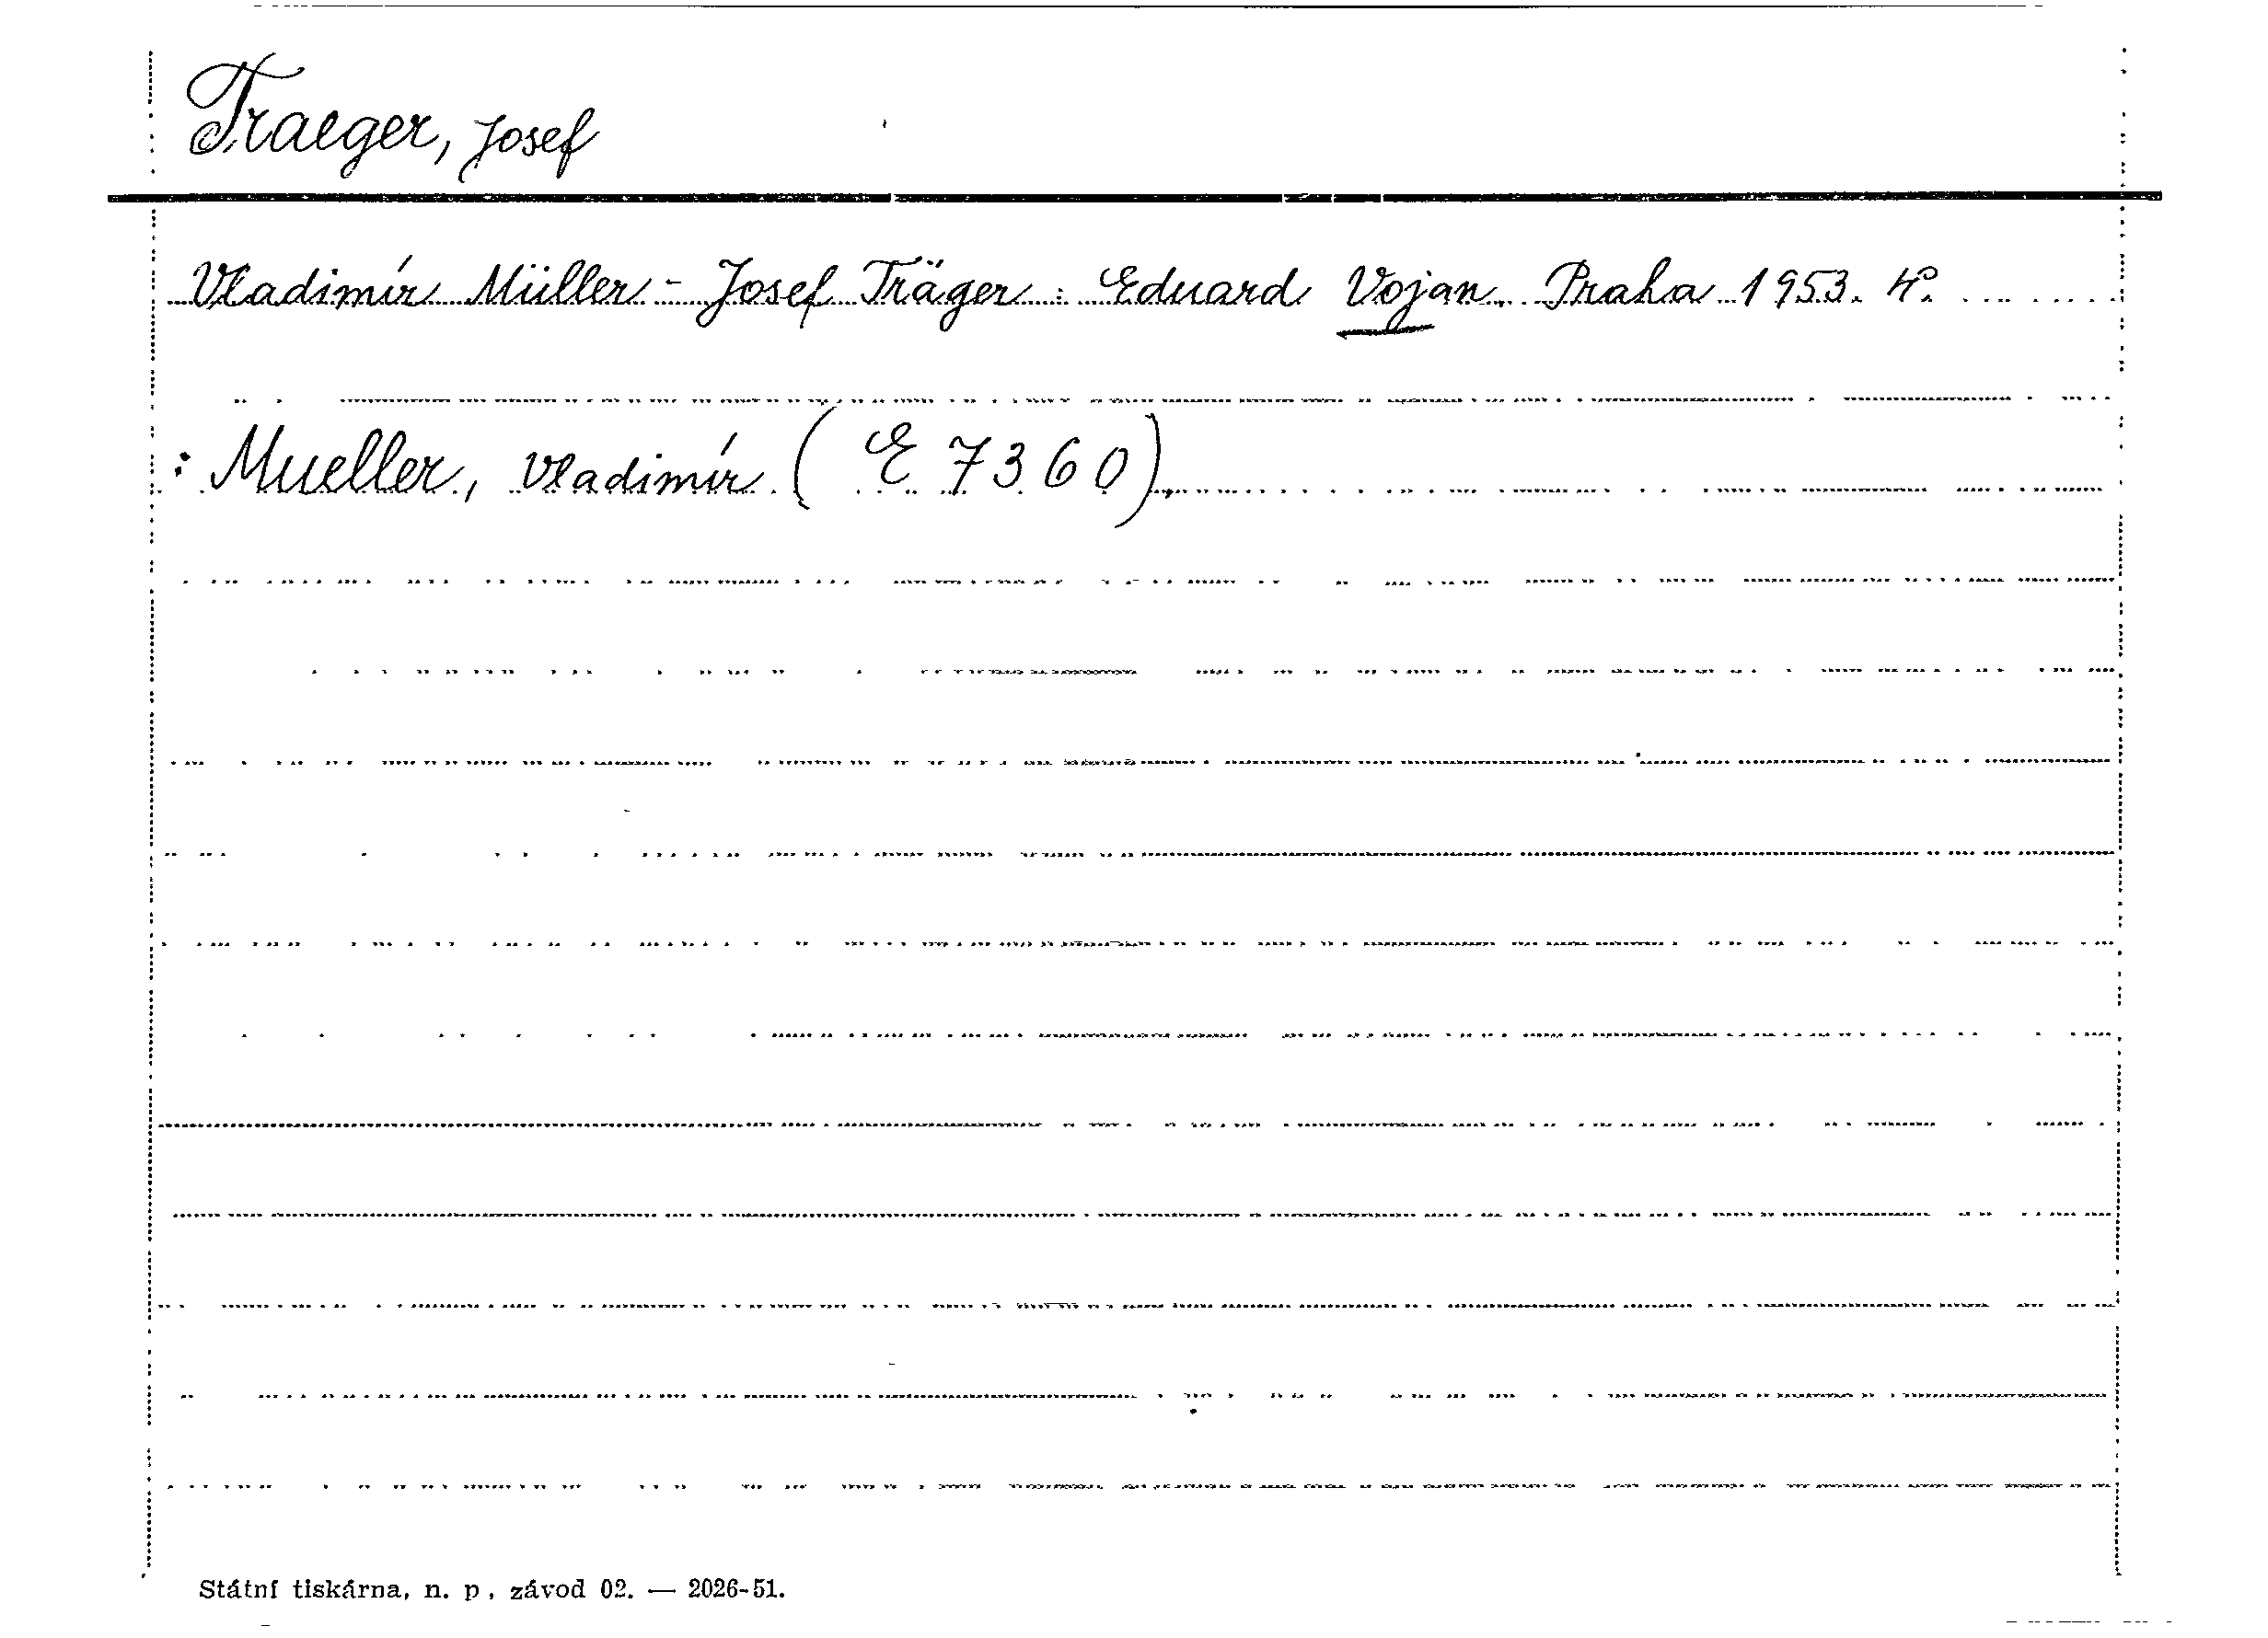 Traeger, Josef
Vladimír Müller - Josef Träger : Eduard Vojan. Praha 1953. 4°.
: Mueller, Vladimír (E 7360)
Státní tiskárna, n. p., závod 02. — 2026-51.